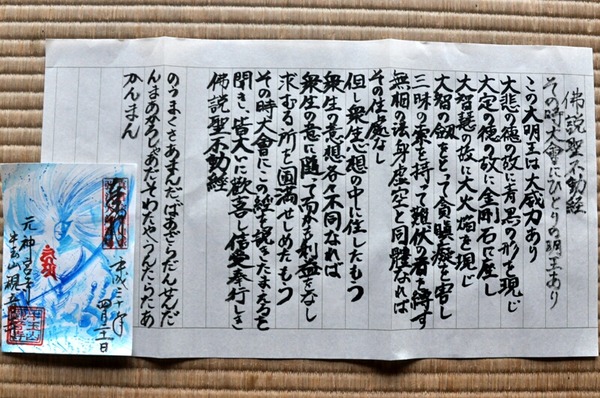 佛説聖不動経
その時大會にひとりの明王あり
この大明王は大威力あり
大悲の徳の故に青黒の形を現じ
大定の徳の故に金剛石に座し
大智慧の故に大火焔を現じ
大智の剣をとって貪瞋癡を害し
三昧の索を持って難伏の者を縛す
無相の法身虚空と同體なれば
その住處なし
但し衆生心想の中に住したもう
衆生の意想各々不同なれば
衆生の意に随って而かも利益をなし
求むる所を圓満せしめたもう
その時大會にこの経を説きたまるを
聞き皆大いに歓喜し信受奉行しき
佛説聖不動経
のうまくさあまんだばあざらだんせんだ
んまあかろしゃあだそわたやうんたらたあ
かんまん
平成三十年
四月二十一日
元神宮寺
牛玉山観音寺